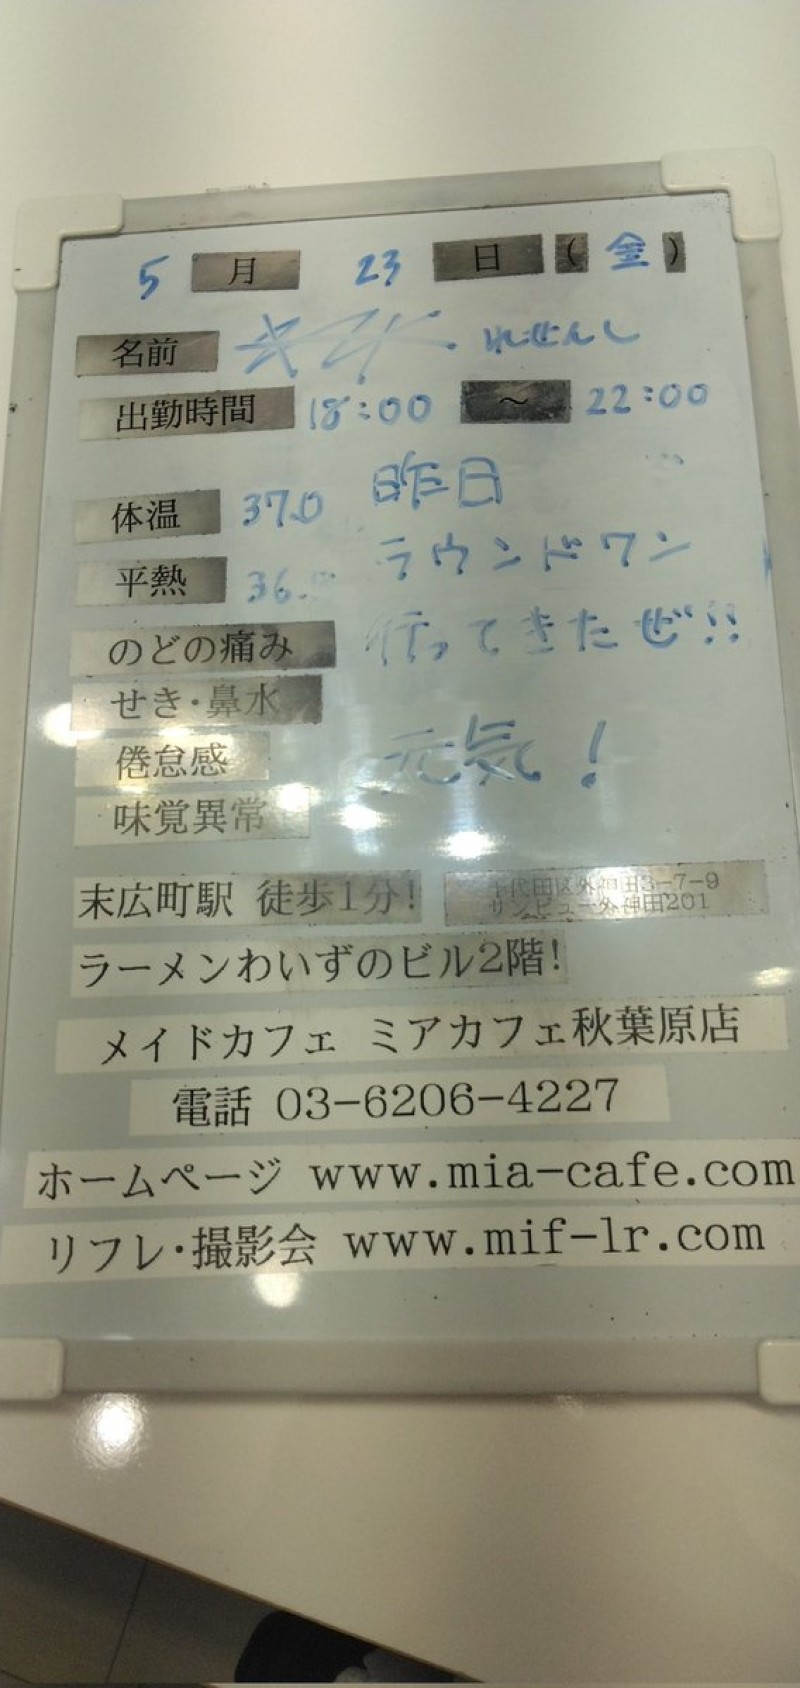 5 月 23 日 (金)
名前
出勤時間 18:00 ～ 22:00
体温 37.0 昨日
平熱 36. ラウンドワン
のどの痛み 行ってきたぜ!!
せき・鼻水
倦怠感 元気!
味覚異常
末広町駅 徒歩1分!
千代田区外神田3-7-9
サンビュー外神田201
ラーメンわいずのビル2階!
メイドカフェ ミアカフェ秋葉原店
電話 03-6206-4227
ホームページ www.mia-cafe.com
リフレ・撮影会 www.mif-lr.com